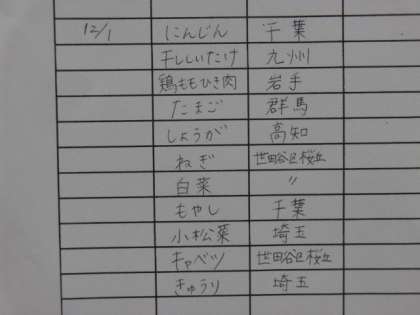 12/1 にんじん 千葉
干ししいたけ 九州
鶏ももひき肉 岩手
たまご 群馬
しょうが 高知
ねぎ 世田谷区桜丘
白菜 〃
もやし 千葉
小松菜 埼玉
キャベツ 世田谷区桜丘
きゅうり 埼玉